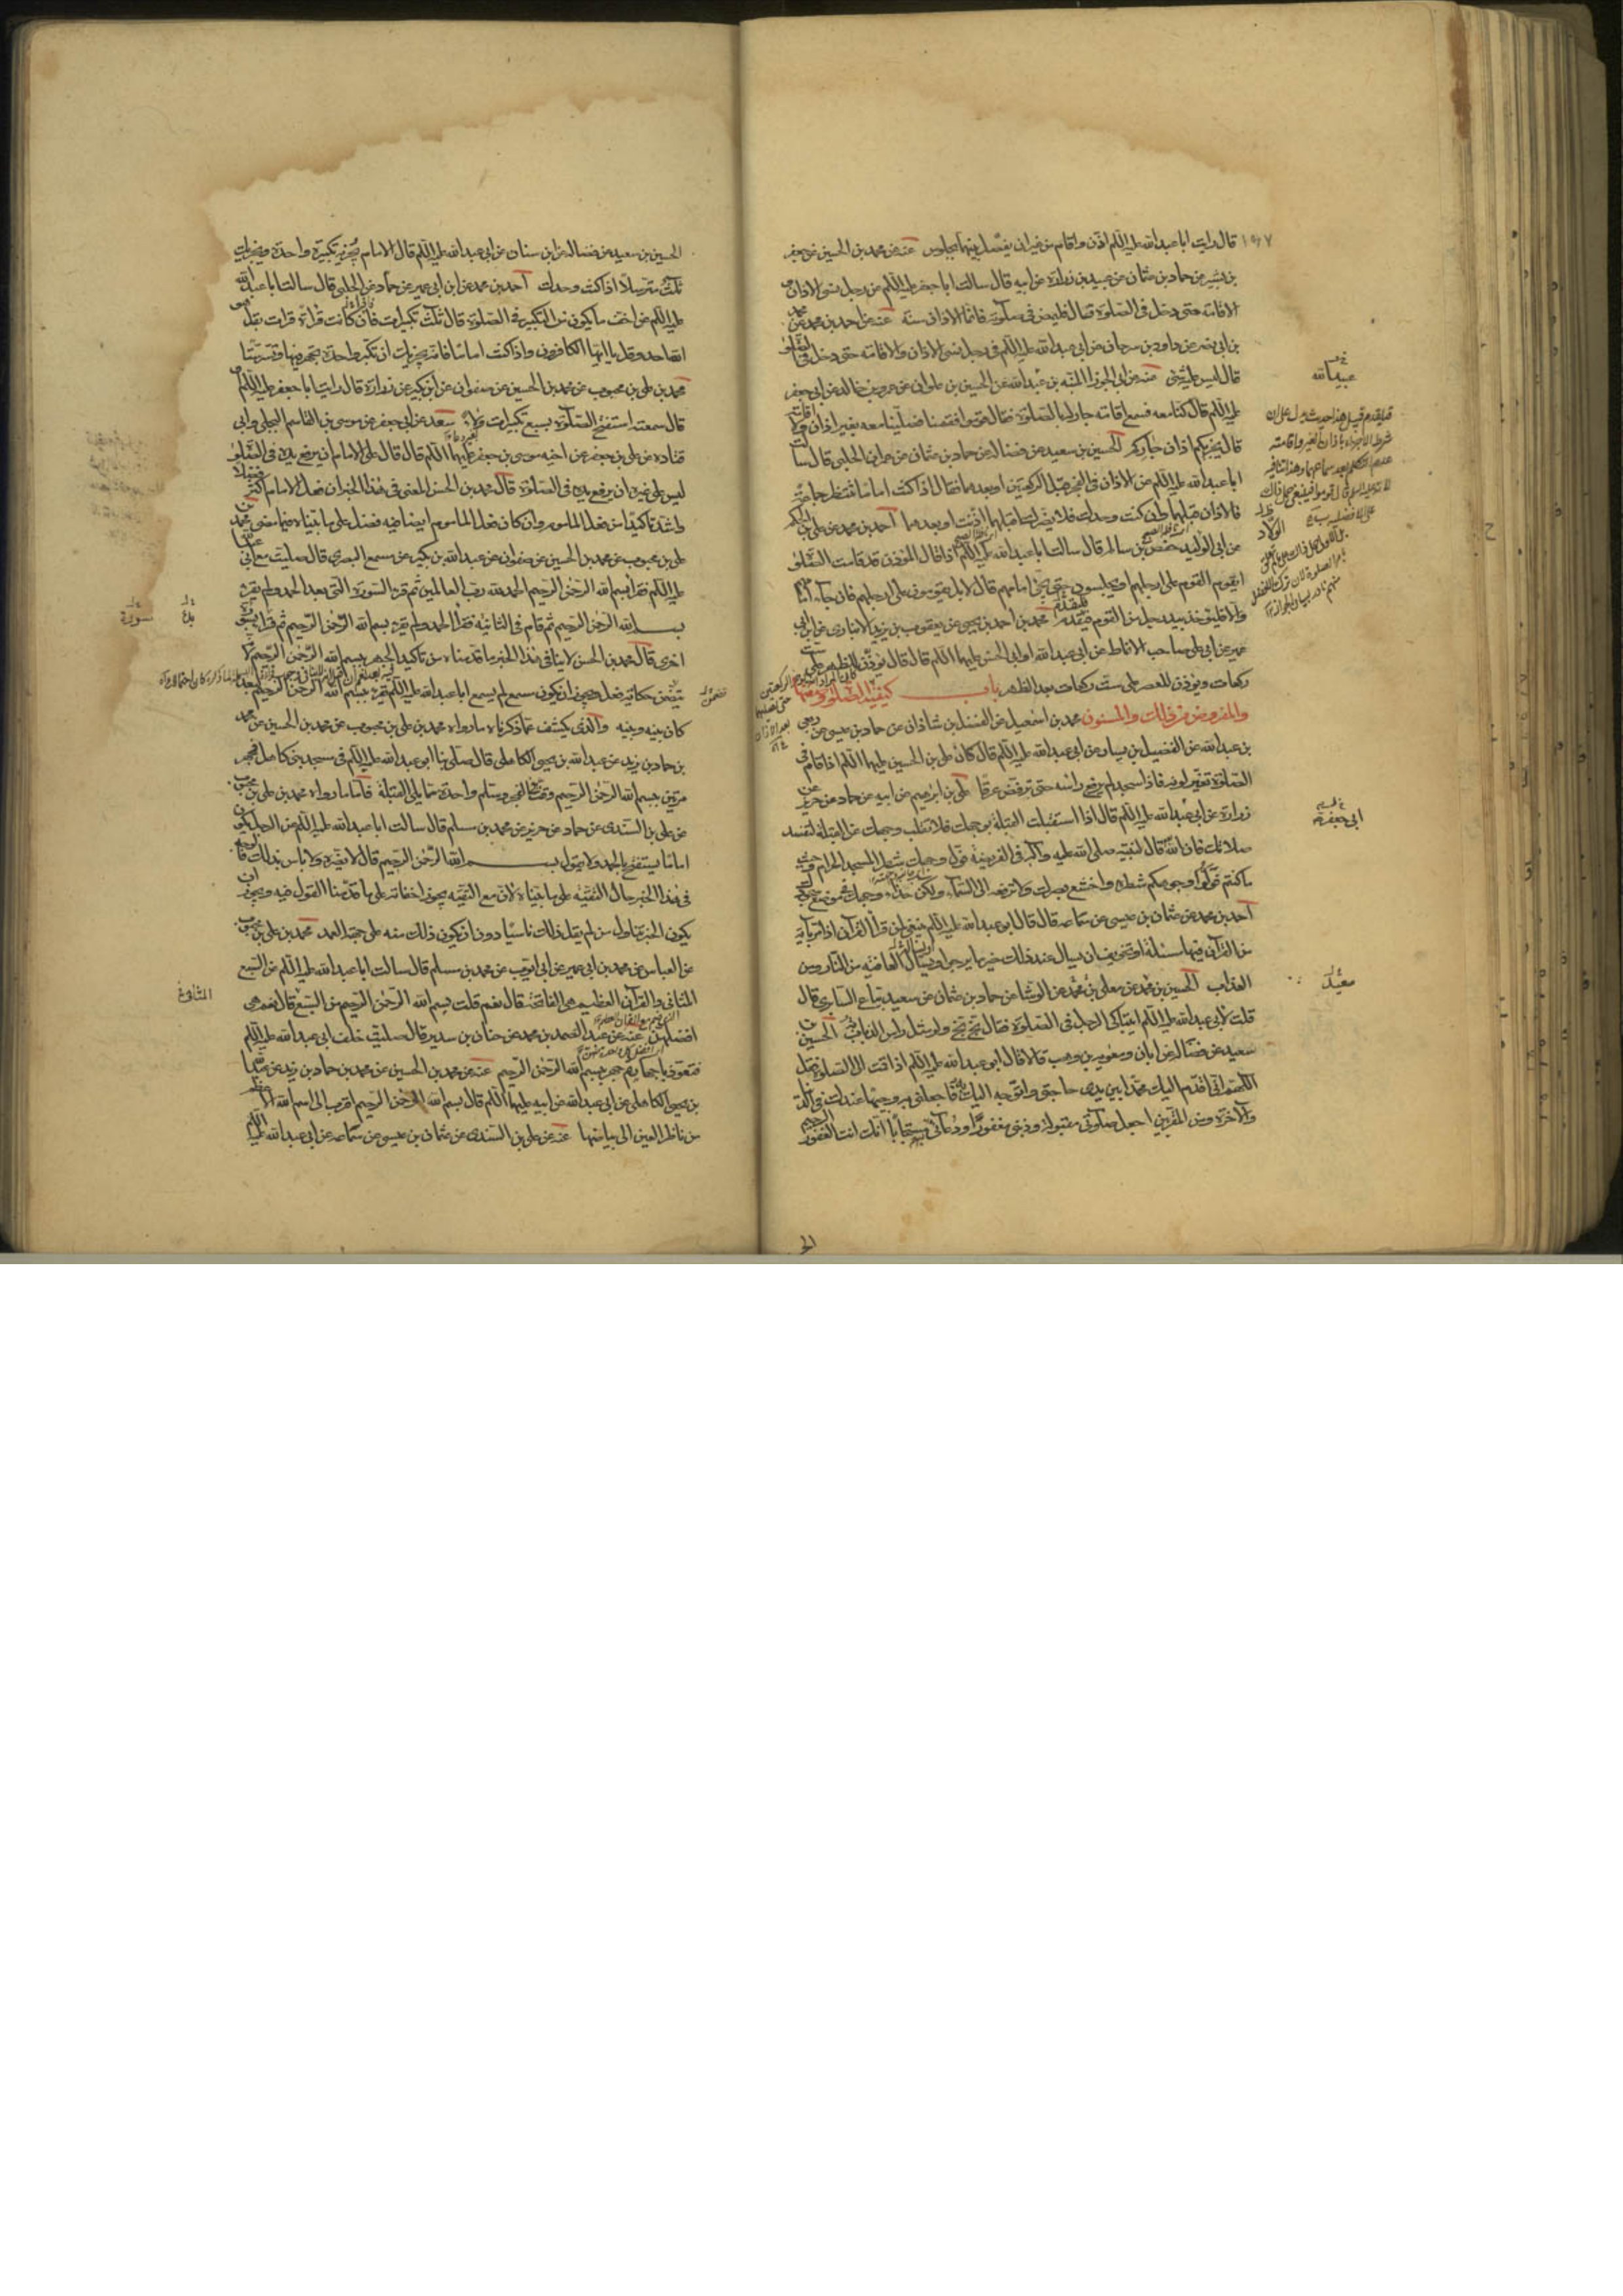 قال رايت ابا عبد الله عليه السلام اذن واقام من غير ان يفصل بينهما بجلوس عنه عن محمد بن الحسين عن جعفر
بن بشير عن حماد بن عثمان عن عبيد بن زرارة عن ابيه قال سالت ابا جعفر عليه السلام عن رجل نسى الاذان و
الاقامة حتى دخل في الصلوة قال فليمض في صلوته فانما الاذان سنة عنه عن احمد بن محمد عن محمد
بن ابي نصر عن داود بن سرحان عن ابي عبد الله عليه السلام في رجل نسى الاذان والاقامة حتى دخل في الصلوة
قال ليس عليه شئ عنه عن ابي الجوزا المنبه بن عبد الله عن الحسين بن علوان عن عمرو بن خالد عن ابي جعفر
عليه السلام قال كنا معه فسمع اقامة جار له بالصلوة فقال قوموا فقمنا فصلينا معه بغير اذان ولا اقامة
قال يجزيكم اذان جاركم الحسين بن سعيد عن فضالة عن حماد بن عثمان عن عمران الحلبي قال سالت
ابا عبد الله عليه السلام عن الاذان في الفجر قبل الركعتين او بعدهما فقال اذا كنت اماما تنتظر جماعة
فالاذان قبلهما وان كنت وحدك فلا يضرك اقبلهما اذنت او بعدهما احمد بن محمد عن علي بن الحكم
عن ابي الوليد حفص بن سالم قال سالت ابا عبد الله عليه السلام اذا قال المؤذن قد قامت الصلوة
ايقوم القوم على ارجلهم او يجلسون حتى يجئ امامهم قال لا بل يقومون على ارجلهم فان جاء امامهم
والا فليؤخذ بيد رجل من القوم فيقدم محمد بن احمد بن يحيى عن يعقوب بن يزيد الانبارى عن ابن ابي
عمير عن ابي علي صاحب الانماط عن ابي عبد الله او ابي الحسن عليهما السلام قال قال يؤذن للظهر على ست
ركعات ويؤذن للعصر على ست ركعات بعد الظهر باب كيفية الصلوة وصفتها
والمفروض من ذلك والمسنون محمد بن اسمعيل عن الفضل بن شاذان عن حماد بن عيسى عن ربعي
بن عبد الله عن الفضيل بن يسار عن ابي عبد الله عليه السلام قال كان علي بن الحسين عليهما السلام اذا قام في
الصلوة تغير لونه فاذا سجد لم يرفع راسه حتى يرفض عرقا علي بن ابرهيم عن ابيه عن حماد عن حريز عن
زرارة عن ابي عبد الله عليه السلام قال اذا استقبلت القبلة بوجهك فلا تقلب وجهك عن القبلة لتفسد
صلاتك فان الله قال لنبيه صلى الله عليه وآله في الفريضة فول وجهك شطر المسجد الحرام وحيث
ما كنتم فولوا وجوهكم شطره واخشع ببصرك ولا ترفعه الى السماء وليكن حذاء وجهك في موضع سجودك
احمد بن محمد عن عثمان بن عيسى عن سماعة قال قال ابو عبد الله عليه السلام ينبغي لمن قرا القرآن اذا مر بآية
من القرآن فيها مسئلة او تخويف ان يسال عند ذلك خير ما يرجو ويسال العافية من النار ومن
العذاب الحسين بن محمد عن معلى بن محمد عن الوشا عن حماد بن عثمان عن سعيد بياع السابرى قال
قلت لابي عبد الله عليه السلام ايتباكى الرجل في الصلوة فقال بخ بخ ولو مثل راس الذباب الحسين بن
سعيد عن فضالة عن ابان ومعوية بن وهب قالا قال ابو عبد الله عليه السلام اذا قمت الى الصلوة فقل
اللهم اني اقدم اليك محمدا بين يدى حاجتي واتوجه اليك به فاجعلني به وجيها عندك في الدنيا
والآخرة ومن المقربين اجعل صلوتي مقبولة وذنبي مغفورا ودعائي مستجابا انك انت الغفور الرحيم
عبيد الله
ابي جعفر
معبد
الحسين بن سعيد عن فضالة عن ابن سنان عن ابي عبد الله عليه السلام قال الامام يجزيه تكبيرة واحدة ويجزيك
ثلث مترسلا اذا كنت وحدك احمد بن محمد عن ابن ابي عمير عن حماد عن الحلبي قال سالت ابا عبد الله
عليه السلام عن اخف ما يكون من التكبير في الصلوة قال ثلث تكبيرات فان كانت قراءة قرات بقل هو
الله احد وقل يا ايها الكافرون واذا كنت اماما فانه يجزيك ان تكبر واحدة تجهر فيها وتسر ستا
محمد بن علي بن محبوب عن محمد بن الحسين عن صفوان عن ابن بكير عن زرارة قال رايت ابا جعفر عليه السلام او
قال سمعته استفتح الصلوة بسبع تكبيرات ولاء سعد عن ابي جعفر عن موسى بن القاسم البجلي وابي
قتادة عن علي بن جعفر عن اخيه موسى بن جعفر عليهما السلام قال قال على الامام ان يرفع يده في الصلوة
ليس على غيره ان يرفع يده في الصلوة قال محمد بن الحسن المعنى في هذا الخبر ان فعل الامام اكثر فضلا
واشد تاكيدا من فعل الماموم وان كان فعل الماموم ايضا فيه فضل على ما بيناه فيما مضى محمد بن
علي بن محبوب عن محمد بن الحسين عن صفوان عن عبد الله بن بكير عن مسمع البصرى قال صليت مع ابي عبد الله
عليه السلام فقرا بسم الله الرحمن الرحيم الحمد لله رب العالمين ثم قرا السورة التي بعد الحمد ولم يقرء
بسم الله الرحمن الرحيم ثم قام في الثانية فقرا الحمد ولم يقرء بسم الله الرحمن الرحيم ثم قرا بسورة
اخرى قال محمد بن الحسن لا ينافي هذا الخبر ما قدمناه من تاكيد الجهر ببسم الله الرحمن الرحيم
يتضمن حكاية فعل ويجوز ان يكون مسمع لم يسمع ابا عبد الله عليه السلام يقرء بسم الله الرحمن الرحيم لبعد
كان بينه وبينه والذى يكشف عما ذكرناه ما رواه محمد بن علي بن محبوب عن محمد بن الحسين عن محمد
بن حماد بن زيد عن عبد الله بن يحيى الكاهلي قال صلى بنا ابو عبد الله عليه السلام في مسجد بني كاهل فجهر
مرتين ببسم الله الرحمن الرحيم وقنت في الفجر وسلم واحدة مما يلي القبلة فاما ما رواه محمد بن علي بن محبوب
عن علي بن السندى عن حماد عن حريز عن محمد بن مسلم قال سالت ابا عبد الله عليه السلام عن الرجل يكون
اماما يستفتح بالحمد ولا يقول بسم الله الرحمن الرحيم قال لا يضره ولا باس بذلك
في هذا الخبر حال التقية على ما بيناه لان مع التقية يجوز اخفاته على ما قدمنا القول فيه ويجوز ان
يكون الخبر يتناول من لم يقل ذلك ناسيا دون ان يكون ذلك منه على جهة العمد محمد بن علي بن محبوب
عن العباس عن محمد بن ابي عمير عن ابي ايوب عن محمد بن مسلم قال سالت ابا عبد الله عليه السلام عن السبع
المثاني والقرآن العظيم هي الفاتحة قال نعم قلت بسم الله الرحمن الرحيم من السبع قال نعم هي
افضلهن عنه عن عبد الصمد بن محمد عن حنان بن سدير قال صليت خلف ابي عبد الله عليه السلام
فتعوذ باجهار ثم جهر ببسم الله الرحمن الرحيم عنه عن محمد بن الحسين عن محمد بن حماد بن زيد عن عبد الله
بن يحيى الكاهلي عن ابي عبد الله عن ابيه عليهما السلام قال بسم الله الرحمن الرحيم اقرب الى اسم الله الاعظم
من ناظر العين الى بياضها عنه عن علي بن السندى عن عثمان بن عيسى عن سماعة عن ابي عبد الله عليه السلام
سورة
المثاني